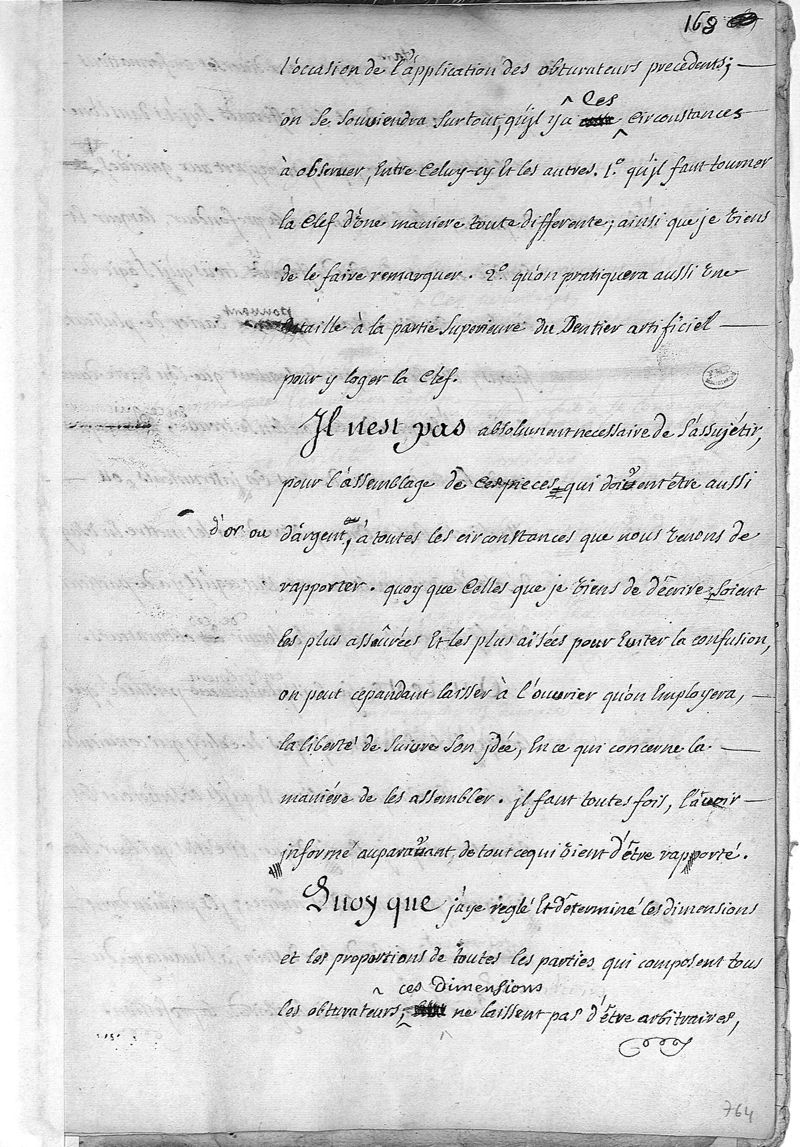 168
l'occasion de l'application des obturateurs precedents;
on se souviendra surtout, qu'jl y a ces circonstances
à observer, Entre Celuy-cy Et les autres. 1.o qu'jl faut tourner
la Clef d'une maniere toute differente; ainsi que je viens
de le faire remarquer. 2.o qu'on pratiquera aussi Une
entaille à la partie Superieure du Dentier artificiel
pour y loger la Clef.
Jl n'est pas absolument necessaire de s'assujétir,
pour l'assemblage de Ces pieces, qui doivent être aussi
d'or ou d'argent, à toutes les circonstances que nous venons de
rapporter. quoy que Celles que je viens de décrire, soient
les plus assûrées Et les plus aisées pour Eviter la confusion,
on peut cepandant laisser à l'ouvrier qu'on Employera,
la liberté de suivre son jdée, En ce qui concerne la
maniére de les assembler. jl faut toutes fois, l'avoir
jnformé auparavant, de tout ce qui vient d'être rapporté.
Quoy que j'aye reglé Et déterminé les dimensions
et les proportions de toutes les parties qui composent tous
les obturateurs, ces dimensions ne laissent pas d'être arbitraires,
764